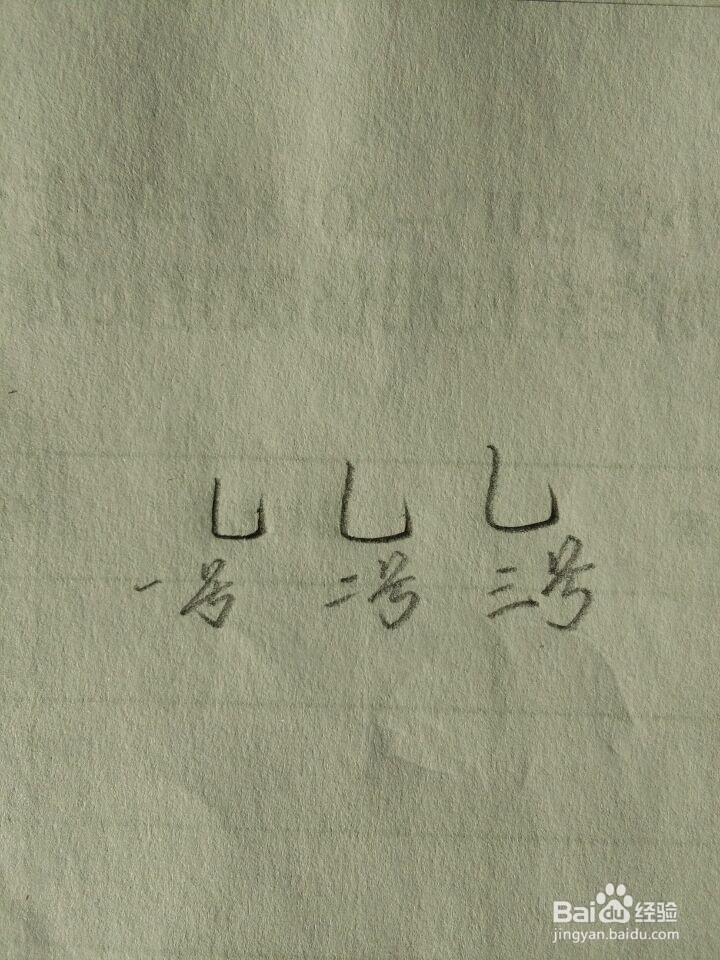 一号 二号 三号
Baidu经验
jingyan.baidu.com